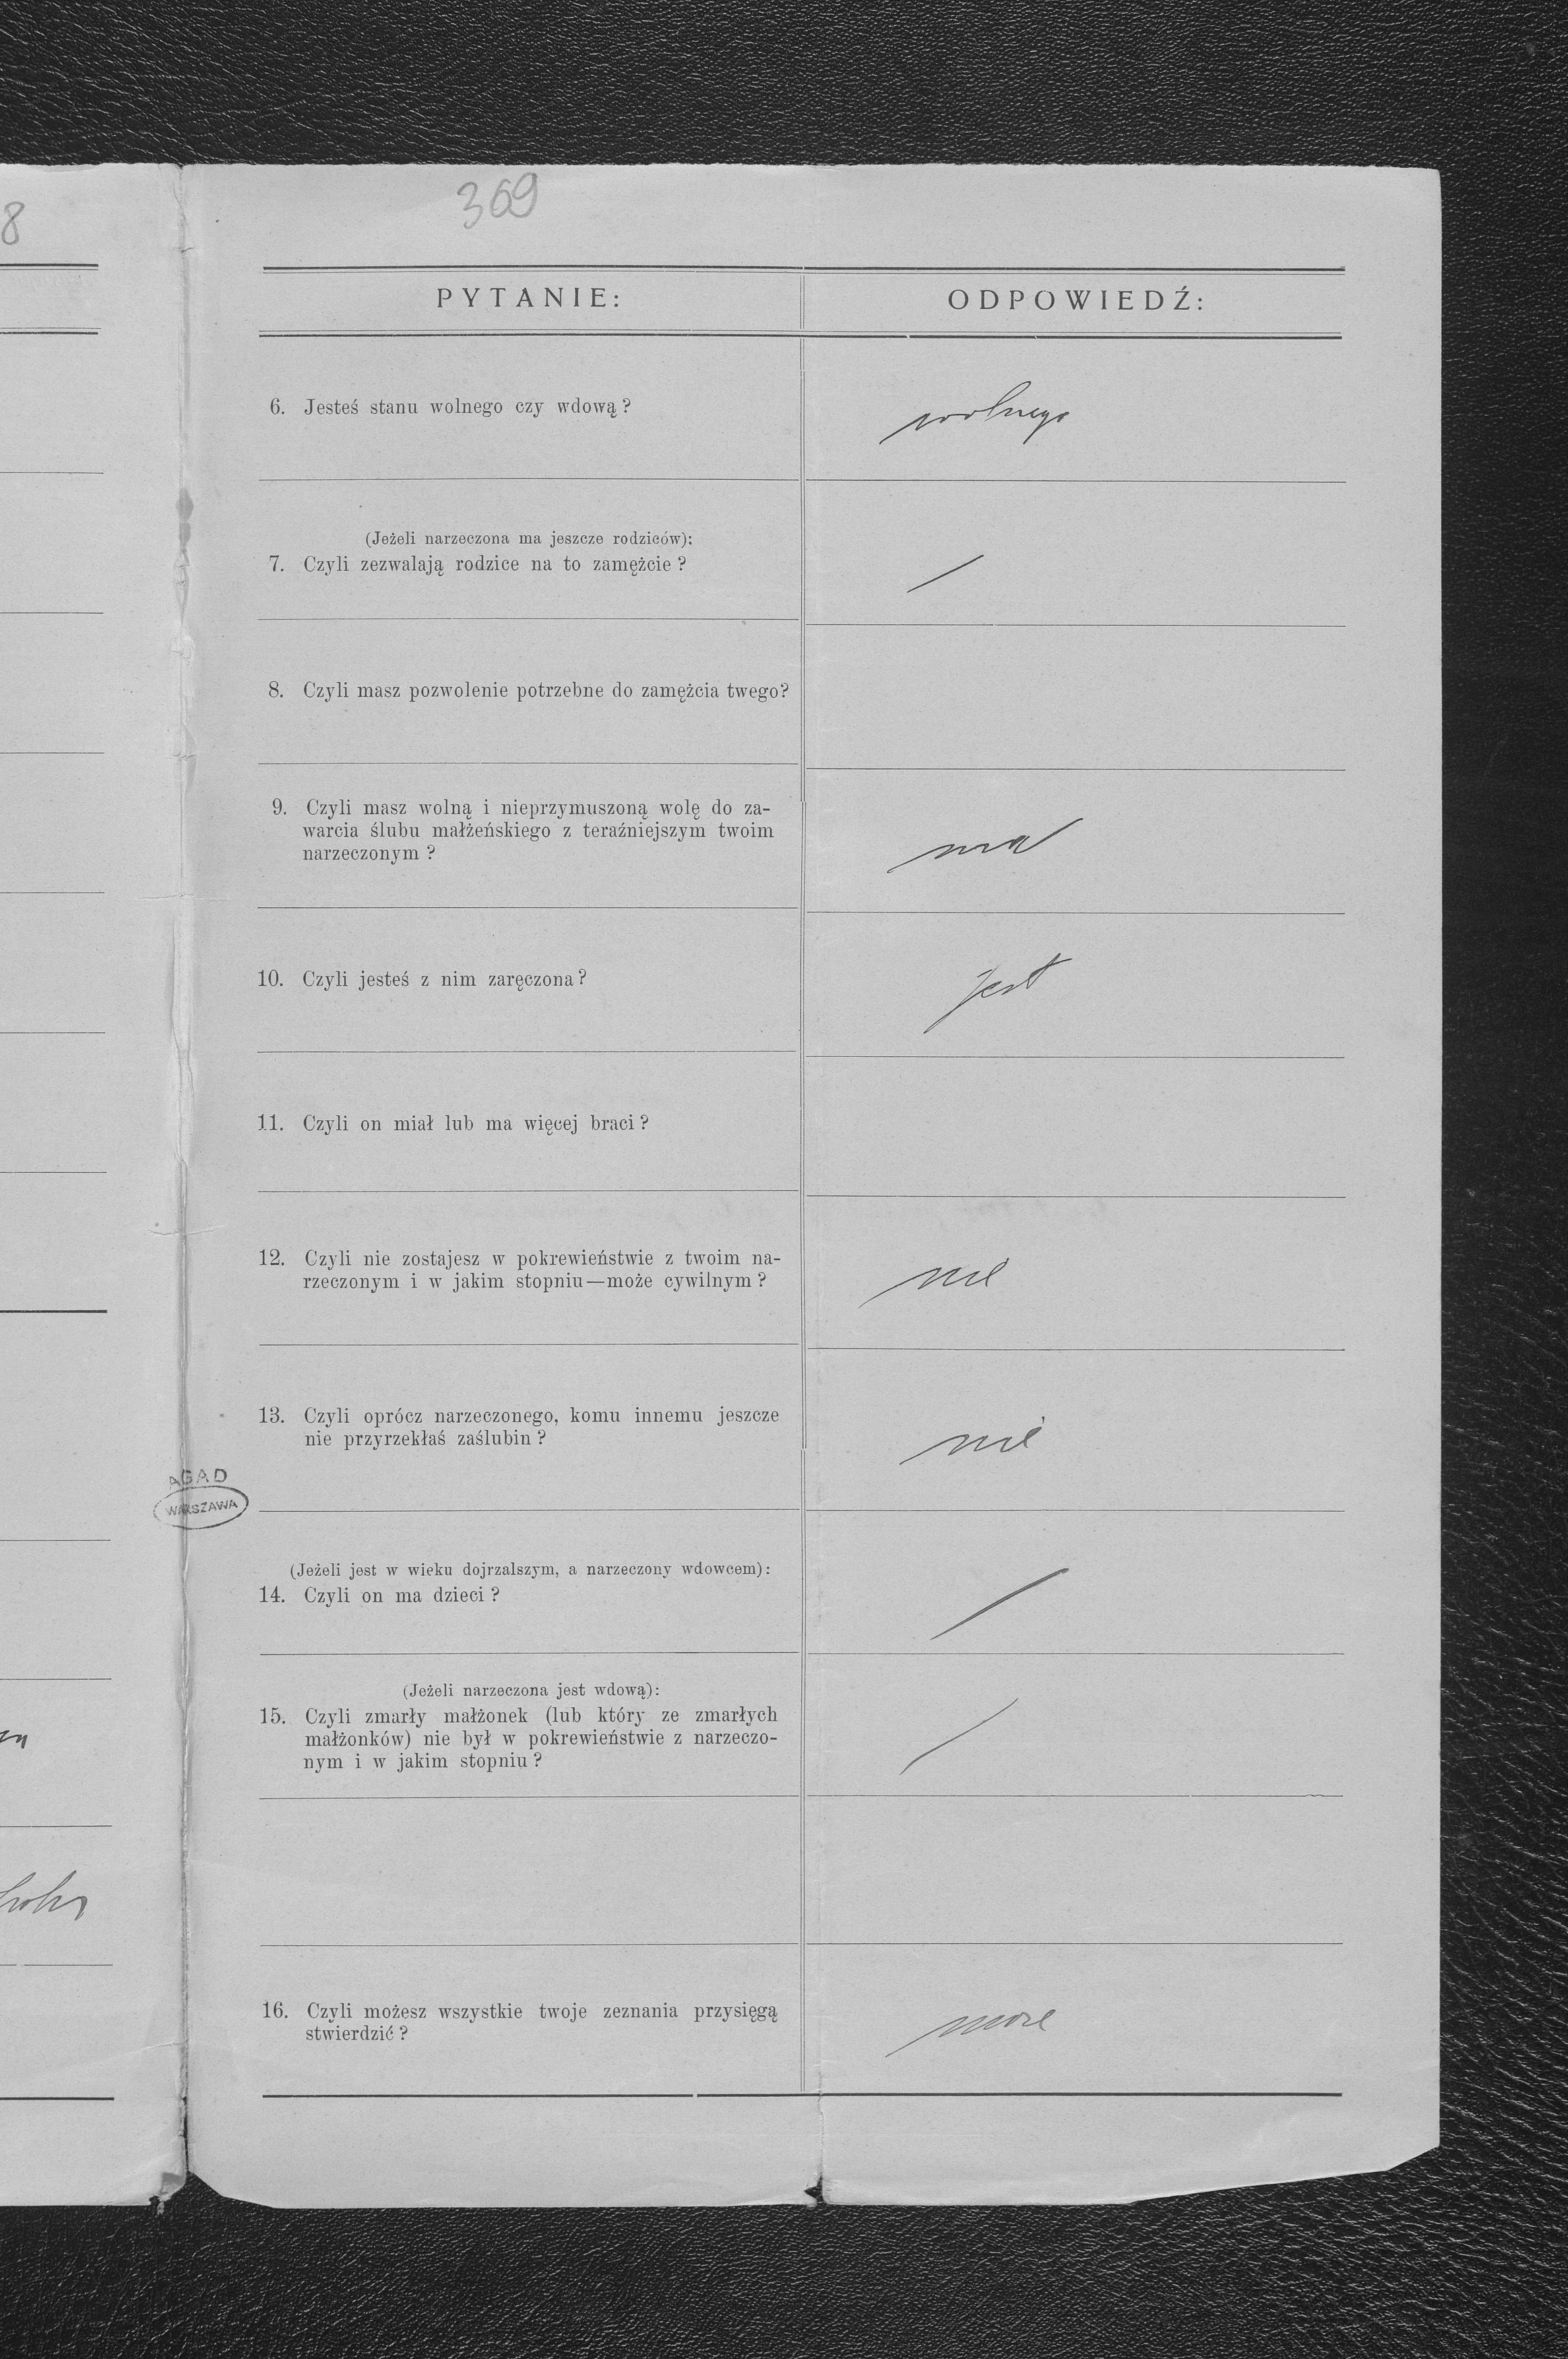 8
369
PYTANIE:
ODPOWIEDŹ:
6. Jesteś stanu wolnego czy wdową?
wolnego
(Jeżeli narzeczona ma jeszcze rodziców):
7. Czyli zezwalają rodzice na to zamężcie?
8. Czyli masz pozwolenie potrzebne do zamężcia twego?
9. Czyli masz wolną i nieprzymuszoną wolę do za-
warcia ślubu małżeńskiego z teraźniejszym twoim
narzeczonym?
ma
10. Czyli jesteś z nim zaręczona?
jest
11. Czyli on miał lub ma więcej braci?
12. Czyli nie zostajesz w pokrewieństwie z twoim na-
rzeczonym i w jakim stopniu—może cywilnym?
nie
13. Czyli oprócz narzeczonego, komu innemu jeszcze
nie przyrzekłaś zaślubin?
nie
AGAD
WARSZAWA
(Jeżeli jest w wieku dojrzalszym, a narzeczony wdowcem):
14. Czyli on ma dzieci?
(Jeżeli narzeczona jest wdową):
15. Czyli zmarły małżonek (lub który ze zmarłych
małżonków) nie był w pokrewieństwie z narzeczo-
nym i w jakim stopniu?
16. Czyli możesz wszystkie twoje zeznania przysięgą
stwierdzić?
może